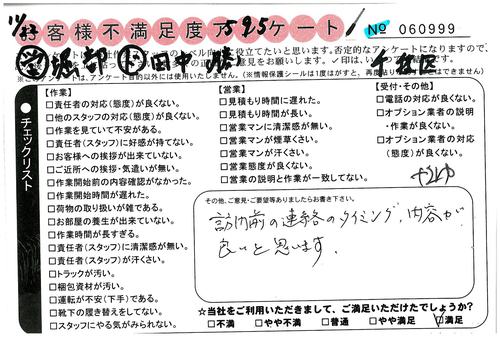 お客様不満足度アンケート
№ 060999
堀部 田中
【作業】
□責任者の対応(態度)が良くない。
□他のスタッフの対応(態度)が良くない。
□作業を見ていて不安がある。
□責任者(スタッフ)に好感が持てない。
□お客様への挨拶が出来ていない。
□ご近所への挨拶・気遣いが無い。
□作業開始前の内容確認がなかった。
□作業開始時間が遅れた。
□荷物の取り扱いが雑である。
□お部屋の養生が出来ていない。
□作業時間が長すぎる。
□責任者(スタッフ)に清潔感が無い。
□責任者(スタッフ)が汗くさい。
□トラックが汚い。
□梱包資材が汚い。
□運転が不安(下手)である。
□靴下の履き替えをしてない。
□スタッフにやる気がみられない。
チェックリスト
【営業】
□見積もり時間に遅れた。
□見積もり時間が長い。
□営業マンに清潔感が無い。
□営業マンが煙草くさい。
□営業マンが汗くさい。
□営業態度が良くない。
□営業の説明と作業が一致してない。
【受付・その他】
□電話の対応が良くない。
□オプション業者の説明
・作業が良くない。
□オプション業者の対応
(態度)が良くない。
その他、ご意見・ご要望等ありましたらお書き下さい。
訪問前の連絡のタイミング、内容が
良いと思います。
★当社をご利用いただきまして、ご満足いただけたでしょうか?
□不満 □やや不満 □普通 □やや満足 □満足